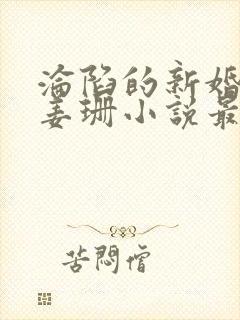 淪陷的新婚
姜珊小説最
苦悶僧